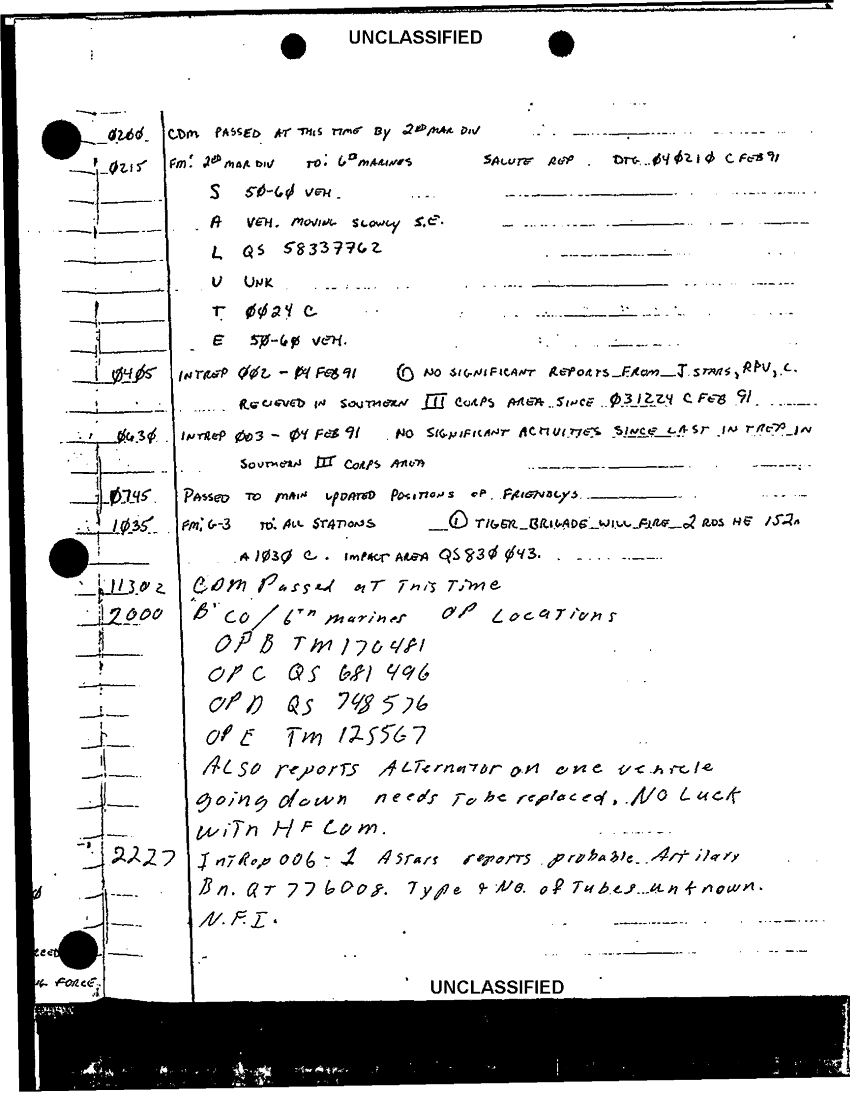 UNCLASSIFIED
0200 CDM PASSED AT THIS TIME BY 2ED MAR DIV
0215 FM: 2ED MAR DIV TO: 6D MARINES SALUTE REP. DTG 040210 C FEB 91
S 50-60 VEH.
A VEH. MOVING SLOWLY S.E.
L QS 58337762
U UNK
T 0024 C
E 50-60 VEH.
0405 INTREP 002 - 04 FEB 91 ① NO SIGNIFICANT REPORTS FROM J STARS, RPV, C.
RECIEVED IN SOUTHERN III CORPS AREA SINCE 031224 C FEB 91
0630 INTREP 003 - 04 FEB 91 NO SIGNIFICANT ACTIVITIES SINCE LAST INTREP IN
SOUTHERN III CORPS AREA
0745 PASSED TO MAIN UPDATED POSITIONS OF FRIENDLYS.
1035 FM: G-3 TO: ALL STATIONS ① TIGER BRIGADE WILL FIRE 2 RDS HE
A 1030 C. IMPACT AREA QS 830 043.
CDM Passed at This Time
2000 "B" CO / 6TH marines OP Locations
OP B TM 170481
OP C QS 681 496
OP D QS 748 576
OP E TM 125567
ALSO reports ALTernator on one vehicle
going down needs to be replaced. NO Luck
with HF Com.
2227 IntRep 006-1 Astars reports probable Artilary
Bn. QT 776008. Type & No. of Tubes unknown.
N.F.I.
FORCE
UNCLASSIFIED